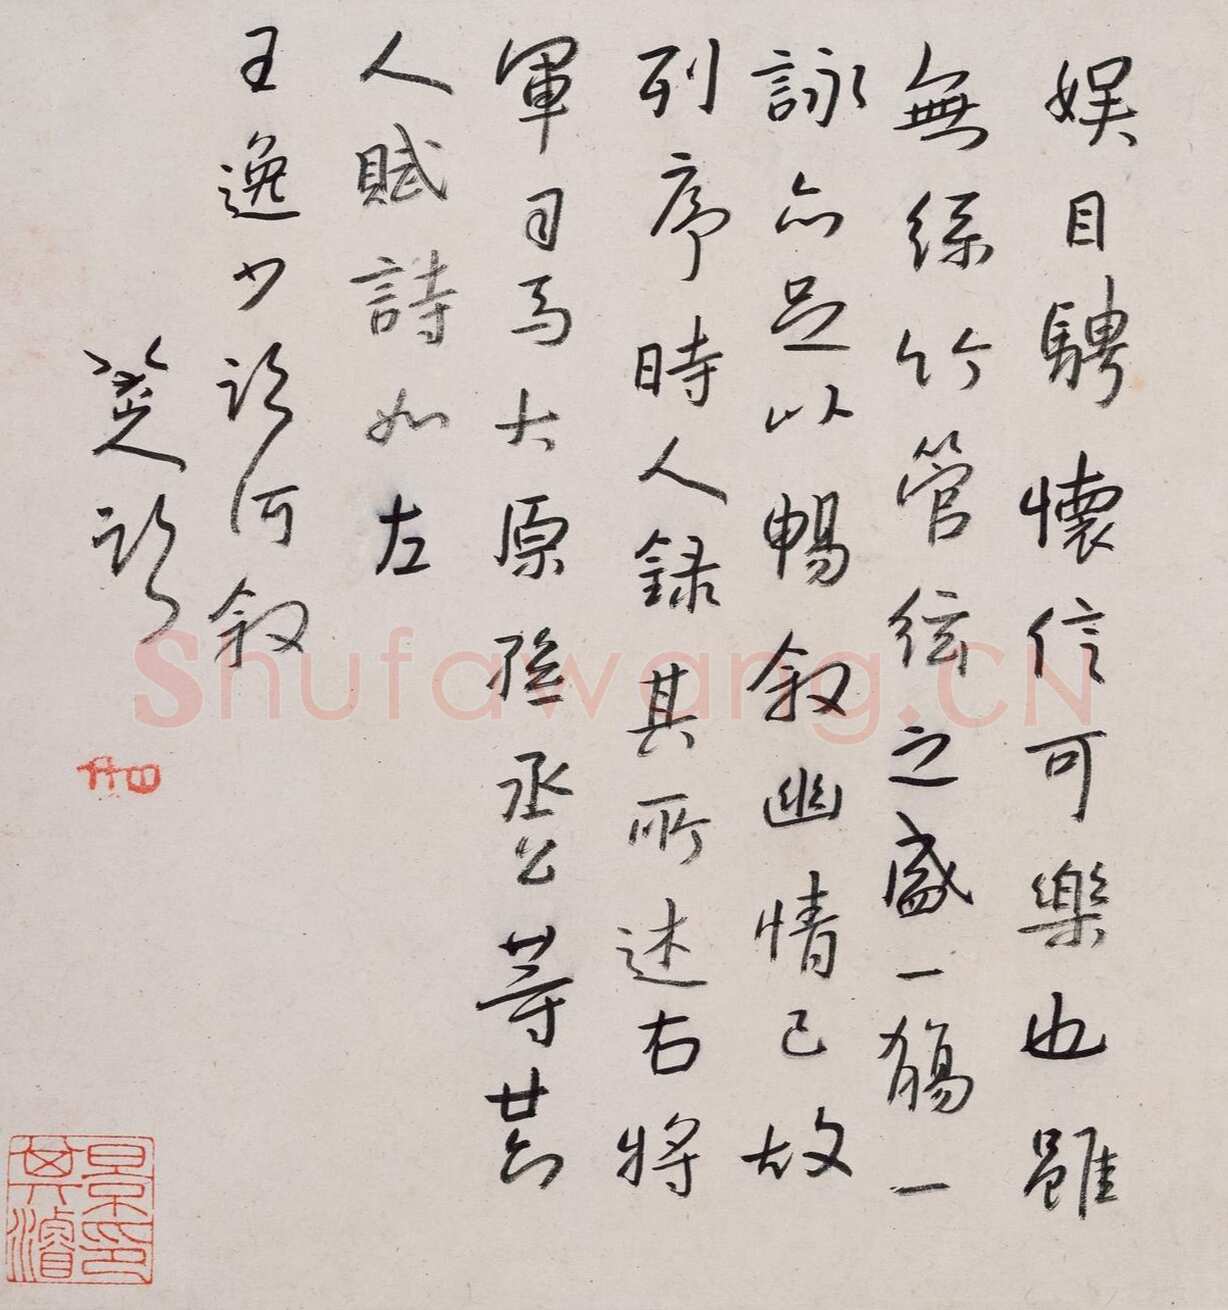 娱目騁懷信可樂也雖
無絲竹管絃之盛一觴一
詠亦足以暢叙幽情已故
列序時人録其所述右將
軍司馬大原孫丞公等廿六
人賦詩如左
王逸少臨河叙
八大山人臨
景其濬印
Shufawang.CN